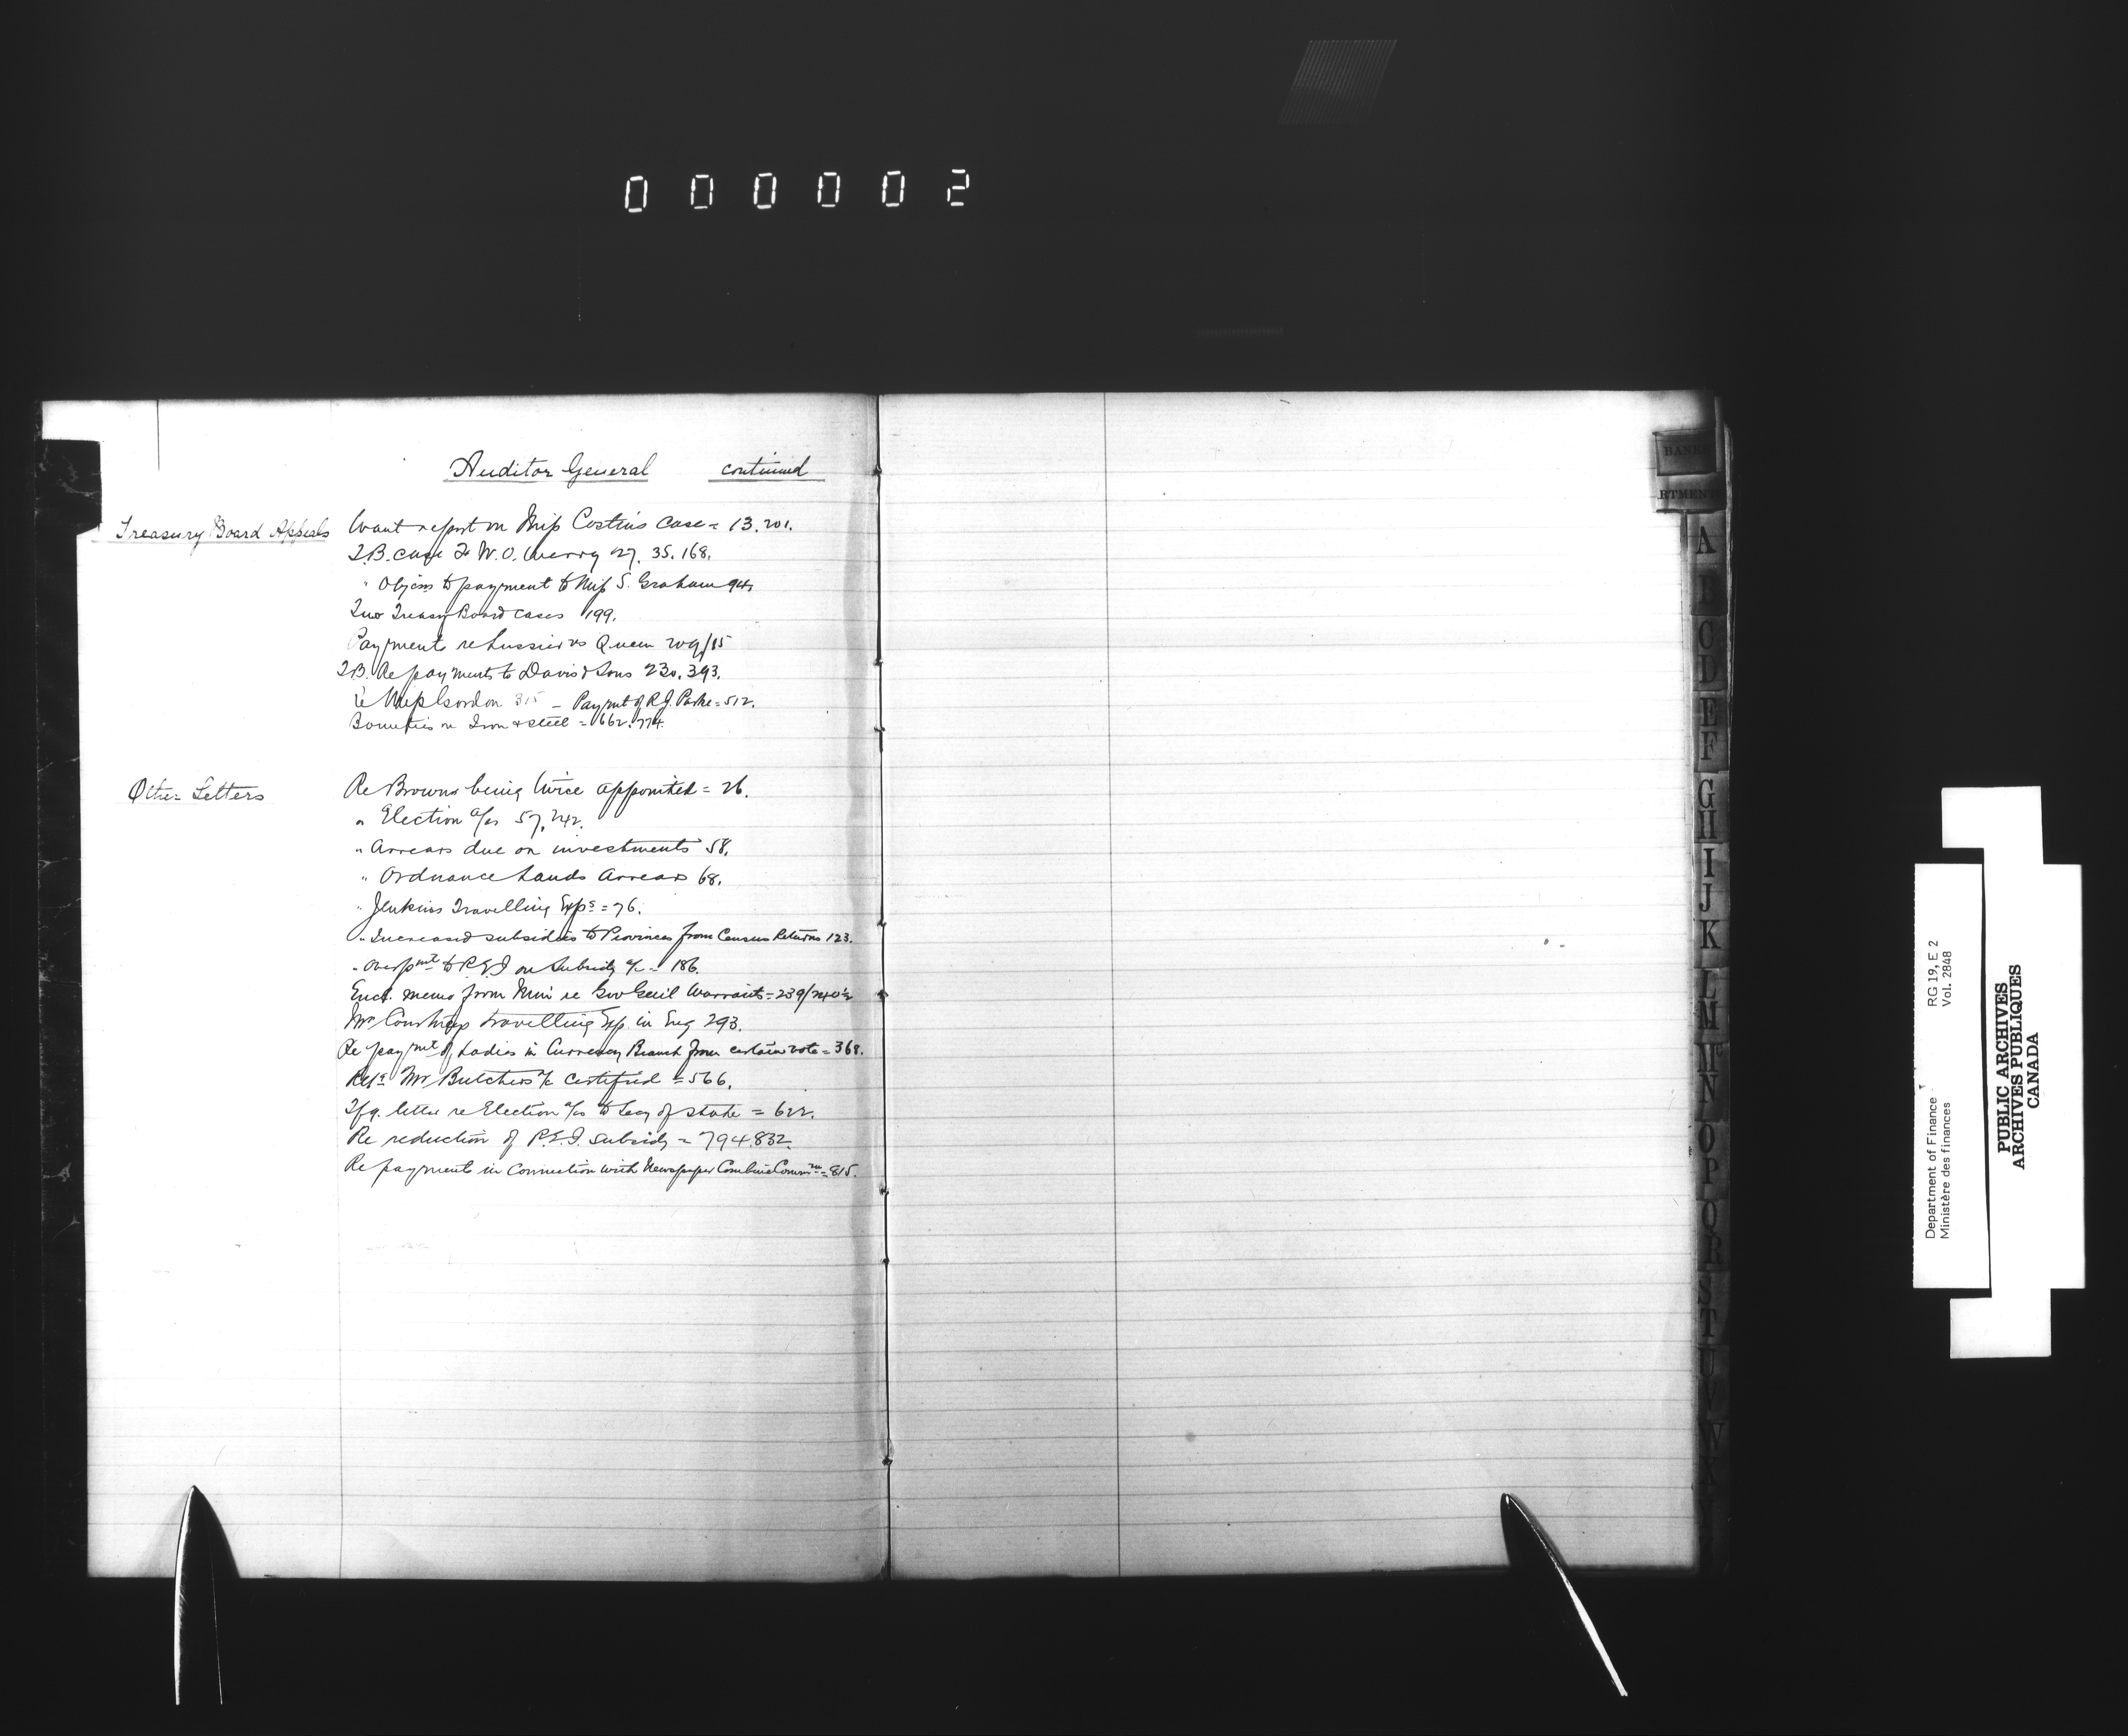 000002
Auditor General continued
Treasury Board Appeals
Want report on Miss Costins case = 13. 201.
T.B. case W. O. Merry 27. 35. 168.
" Objcns to payment to Miss S. Graham 94.
Two Treasy Board cases 199.
Payment re Lussier vs Queen 209/15
T.B. Re payments to David & Sons 230. 393.
Re Miss Gordon 315 - Paymt of R.J. Parke = 512.
Bounties on Iron & Steel = 662. 774.
Other Letters
Re Browns being twice appointed = 26.
" Election a/cs 57, 242.
" Arrears due on investments 58.
" Ordnance Lands Arrears 68.
" Jenkins Travelling Exps = 76.
" Increased subsidies to Provinces from Census Returns 123.
" Overpmt to P.E.I on Subsidy a/c = 186.
Encl. memo from Min re Gov Genl Warrants = 239/240½
Mr Courtneys travelling Exp. in Eng 293.
Re paymt of Ladies in Currency Branch from certain vote = 368.
Retg Mr Butchers a/c certified = 566.
Tfg. letter re Election a/cs to Secy of State = 622.
Re reduction of P.E.I. subsidy = 794. 832.
Re payments in connection with Newspaper Combine Commn = 815.
BANK
RTMENT
A
B
C
D
E
F
G
H
I
J
K
L
M
Mc
N
O
P
Q
R
S
T
U
V
W
Department of Finance
Ministère des finances
RG 19, E 2
Vol. 2848
PUBLIC ARCHIVES
ARCHIVES PUBLIQUES
CANADA